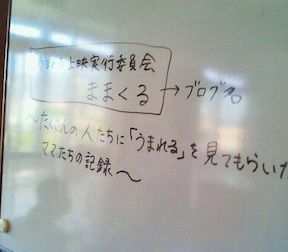 上映実行委員会
ままくる → ブログ名
〜たくさんの人たちに「うまれる」を見てもらいた
ママたちの記録〜